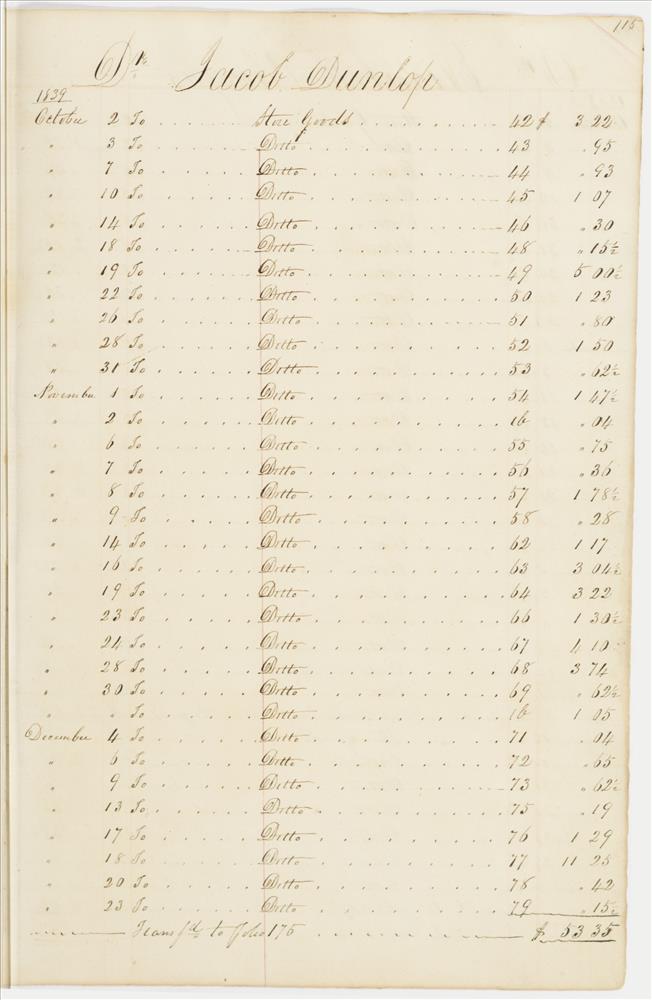 115
Dr. Jacob Dunlop
1839
October 2 To Store Goods 42 $ 3 22
" 3 To Ditto 43 " 95
" 7 To Ditto 44 " 93
" 10 To Ditto 45 1 07
" 14 To Ditto 46 " 30
" 18 To Ditto 48 " 15½
" 19 To Ditto 49 5 00½
" 22 To Ditto 50 1 23
" 26 To Ditto 51 " 80
" 28 To Ditto 52 1 50
" 31 To Ditto 53 " 62½
November 1 To Ditto 54 1 47½
" 2 To Ditto ib " 04
" 6 To Ditto 55 " 75
" 7 To Ditto 56 " 36
" 8 To Ditto 57 1 78½
" 9 To Ditto 58 " 28
" 14 To Ditto 62 1 17
" 16 To Ditto 63 3 04½
" 19 To Ditto 64 3 22
" 23 To Ditto 66 1 30½
" 24 To Ditto 67 4 10
" 28 To Ditto 68 3 74
" 30 To Ditto 69 " 62½
" " To Ditto ib 1 05
December 4 To Ditto 71 " 04
" 6 To Ditto 72 " 65
" 9 To Ditto 73 " 62½
" 13 To Ditto 75 " 19
" 17 To Ditto 76 1 29
" 18 To Ditto 77 11 25
" 20 To Ditto 78 " 42
" 23 To Ditto 79 " 15½
Transfd to folio 175 $ 53 35